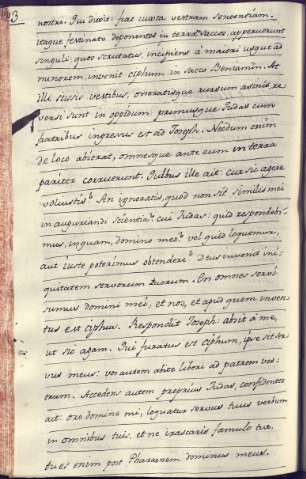 nostri. Qui dixit: fiat iuxta vestram sententiam.
itaque festinato deponentes in terram saccos, aperuerunt
singuli. quos scrutatus, incipiens a maiori usque ad
minorem invenit ciphum in sacco Beniamin. At
illi scissis vestibus, oneratisque rursum asinis re
versi sunt in oppidum. primusque Iudas cum
fratribus ingressus est ad Ioseph. Necdum enim
de loco abierat, omnesque ante eum in terra
pariter corruerunt. Quibus ille ait: cur sic agere
voluistis? An ignoratis, quod non sit similis mei
in augurandi scientia? cui Iudas: quid respondebi-
mus, inquam, domino meo? vel quid loquemur,
aut iuste poterimus obtendere? Deus invenit ini-
quitatem servorum tuorum. En omnes servi
sumus domini mei, et nos, et apud quem inven
tus est ciphus. Respondit Ioseph: absit a me,
ut sic agam. Qui furatus est ciphum, ipse sit ser
vus meus: vos autem abite liberi ad patrem ves-
trum. Accedens autem propius Iudas, confidenter
ait: oro domine mi, loquatur servus tuus verbum
in auribus tuis, et ne irascaris famulo tuo.
tu es enim post Pharaonem dominus meus.